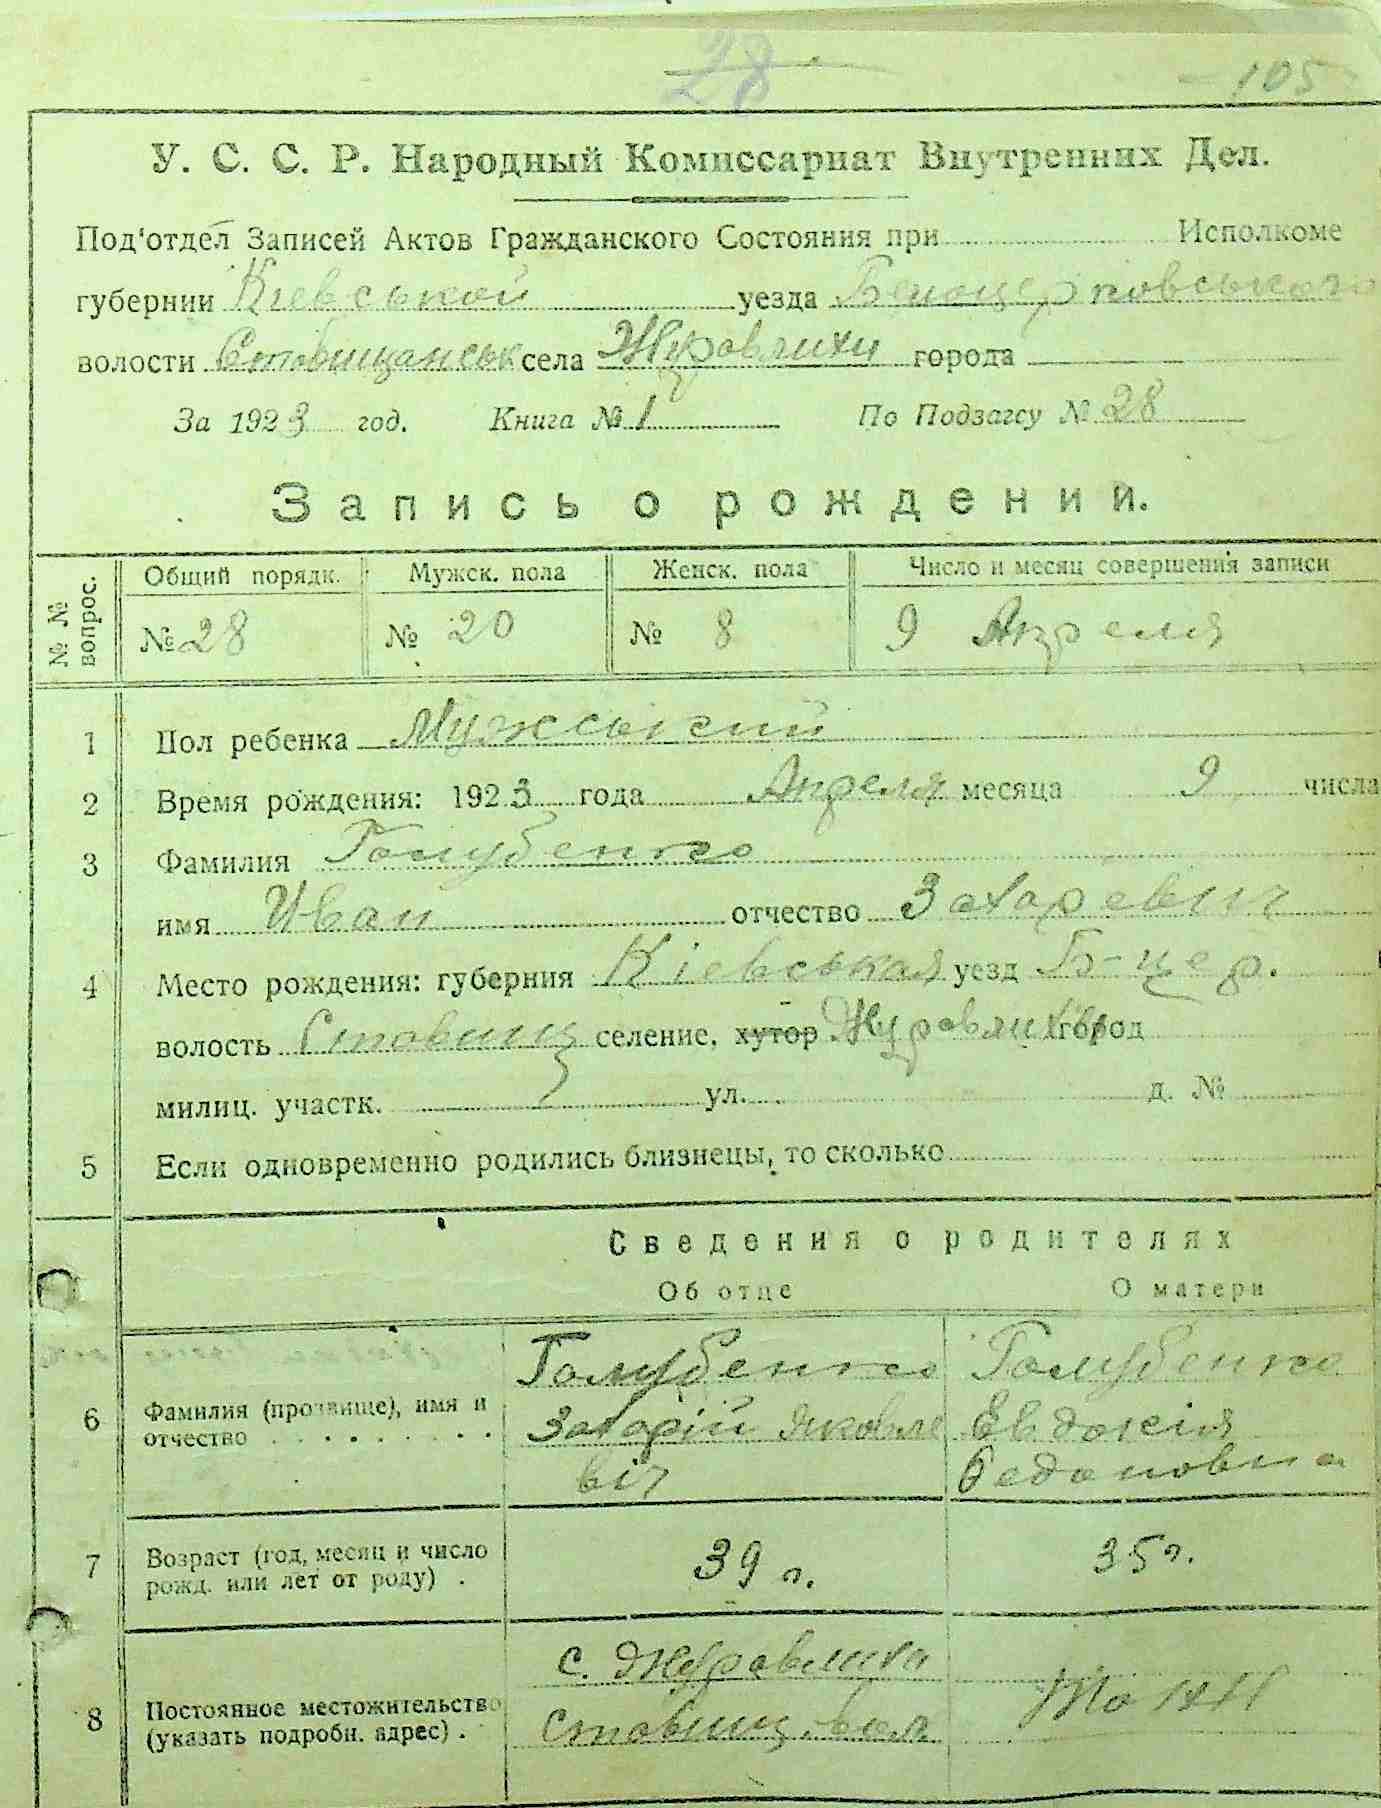 28
105
У. С. С. Р. Народный Комиссариат Внутренних Дел.
Под'отдел Записей Актов Гражданского Состояния при Исполкоме
губернии Кіевськой уезда Белоцерковського
волости Ставищанськ села Журавлихи города
За 1923 год. Книга № 1 По Подзагсу № 28
Запись о рождении.
№№ вопрос. Общий порядк. Мужск. пола Женск. пола Число и месяц совершения записи
№ 28 № 20 № 8 9 Апреля
1 Пол ребенка Мужський
2 Время рождения: 1923 года Апреля месяца 9 числа
3 Фамилия Голубенко
имя Иван отчество Захаревич
4 Место рождения: губерния Кіевськая уезд Б-цер.
волость Ставищ селение, хутор Журавлиха город
милиц. участк. ул. д. №
5 Если одновременно родились близнецы, то сколько
Сведения о родителях
Об отце О матери
6 Фамилия (прозвище), имя и отчество Голубенко Голубенко
Захарій Яковле Евдокія
віч
7 Возраст (год, месяц и число рожд. или лет от роду) . 39 г. 35 г.
8 Постоянное местожительство (указать подробн. адрес) . с. Журавлиха То же
Ставищ. вол.